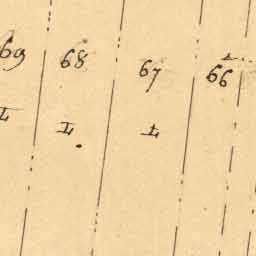 69 68 67 66
I I I I